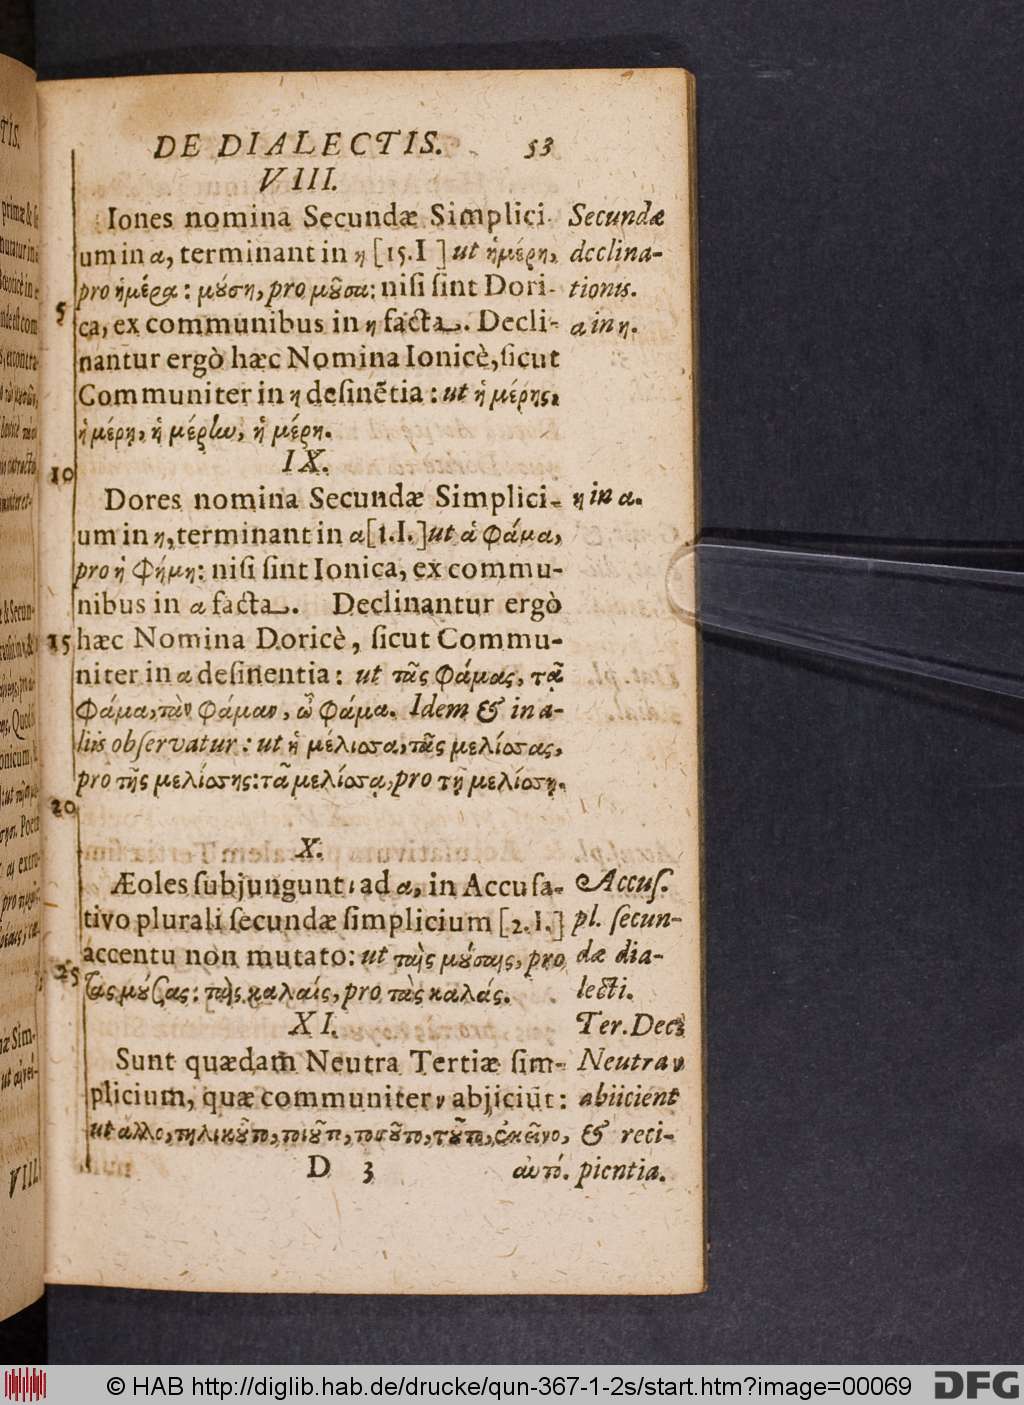 DE DIALECTIS. 53
VIII.
Iones nomina Secundæ Simplici- Secundæ
um in α, terminant in η [15.I] ut ἡμέρη, declina-
pro ἡμέρα: μούση, pro μοῦσα: nisi sint Dori- tionis.
5 ca, ex communibus in η facta. Decli- α in η.
nantur ergò hæc Nomina Ionicè, sicut
Communiter in η desinẽtia: ut ἡ μέρης,
ἡ μέρῃ, ἡ μέρην, ἡ μέρη.
IX.
10
Dores nomina Secundæ Simplici- η in α.
um in η, terminant in α [1.I.] ut ἁ φάμα,
pro ἡ φήμη: nisi sint Ionica, ex commu-
nibus in α facta. Declinantur ergò
15 hæc Nomina Doricè, sicut Commu-
niter in α desinentia: ut τᾶς φάμας, τᾷ
φάμα, τὰν φάμαν, ὦ φάμα. Idem & in a-
liis observatur: ut ἡ μέλισσα, τᾶς μελίσσας,
pro τῆς μελίσσης: τᾷ μελίσσᾳ, pro τῇ μελίσσῃ.
20
X.
Æoles subjungunt ι ad α, in Accusa- Accus.
tivo plurali secundæ simplicium [2.I.] pl. secun-
accentu non mutato: ut ταὶς μούσαις, pro dæ dia-
25 τὰς μούσας: ταὶς καλαίς, pro τὰς καλάς. lecti.
XI. Ter. Dec.
Sunt quædam Neutra Tertiæ sim- Neutra ν
plicium, quæ communiter ν abjiciũt: abiicient
ut αλλο, τηλικοῦτο, τοιοῦτο, τοσοῦτο, τοῦτο, ἐκεῖνο, & reci-
D 3 αὐτό. pientia.
© HAB http://diglib.hab.de/drucke/qun-367-1-2s/start.htm?image=00069 DFG